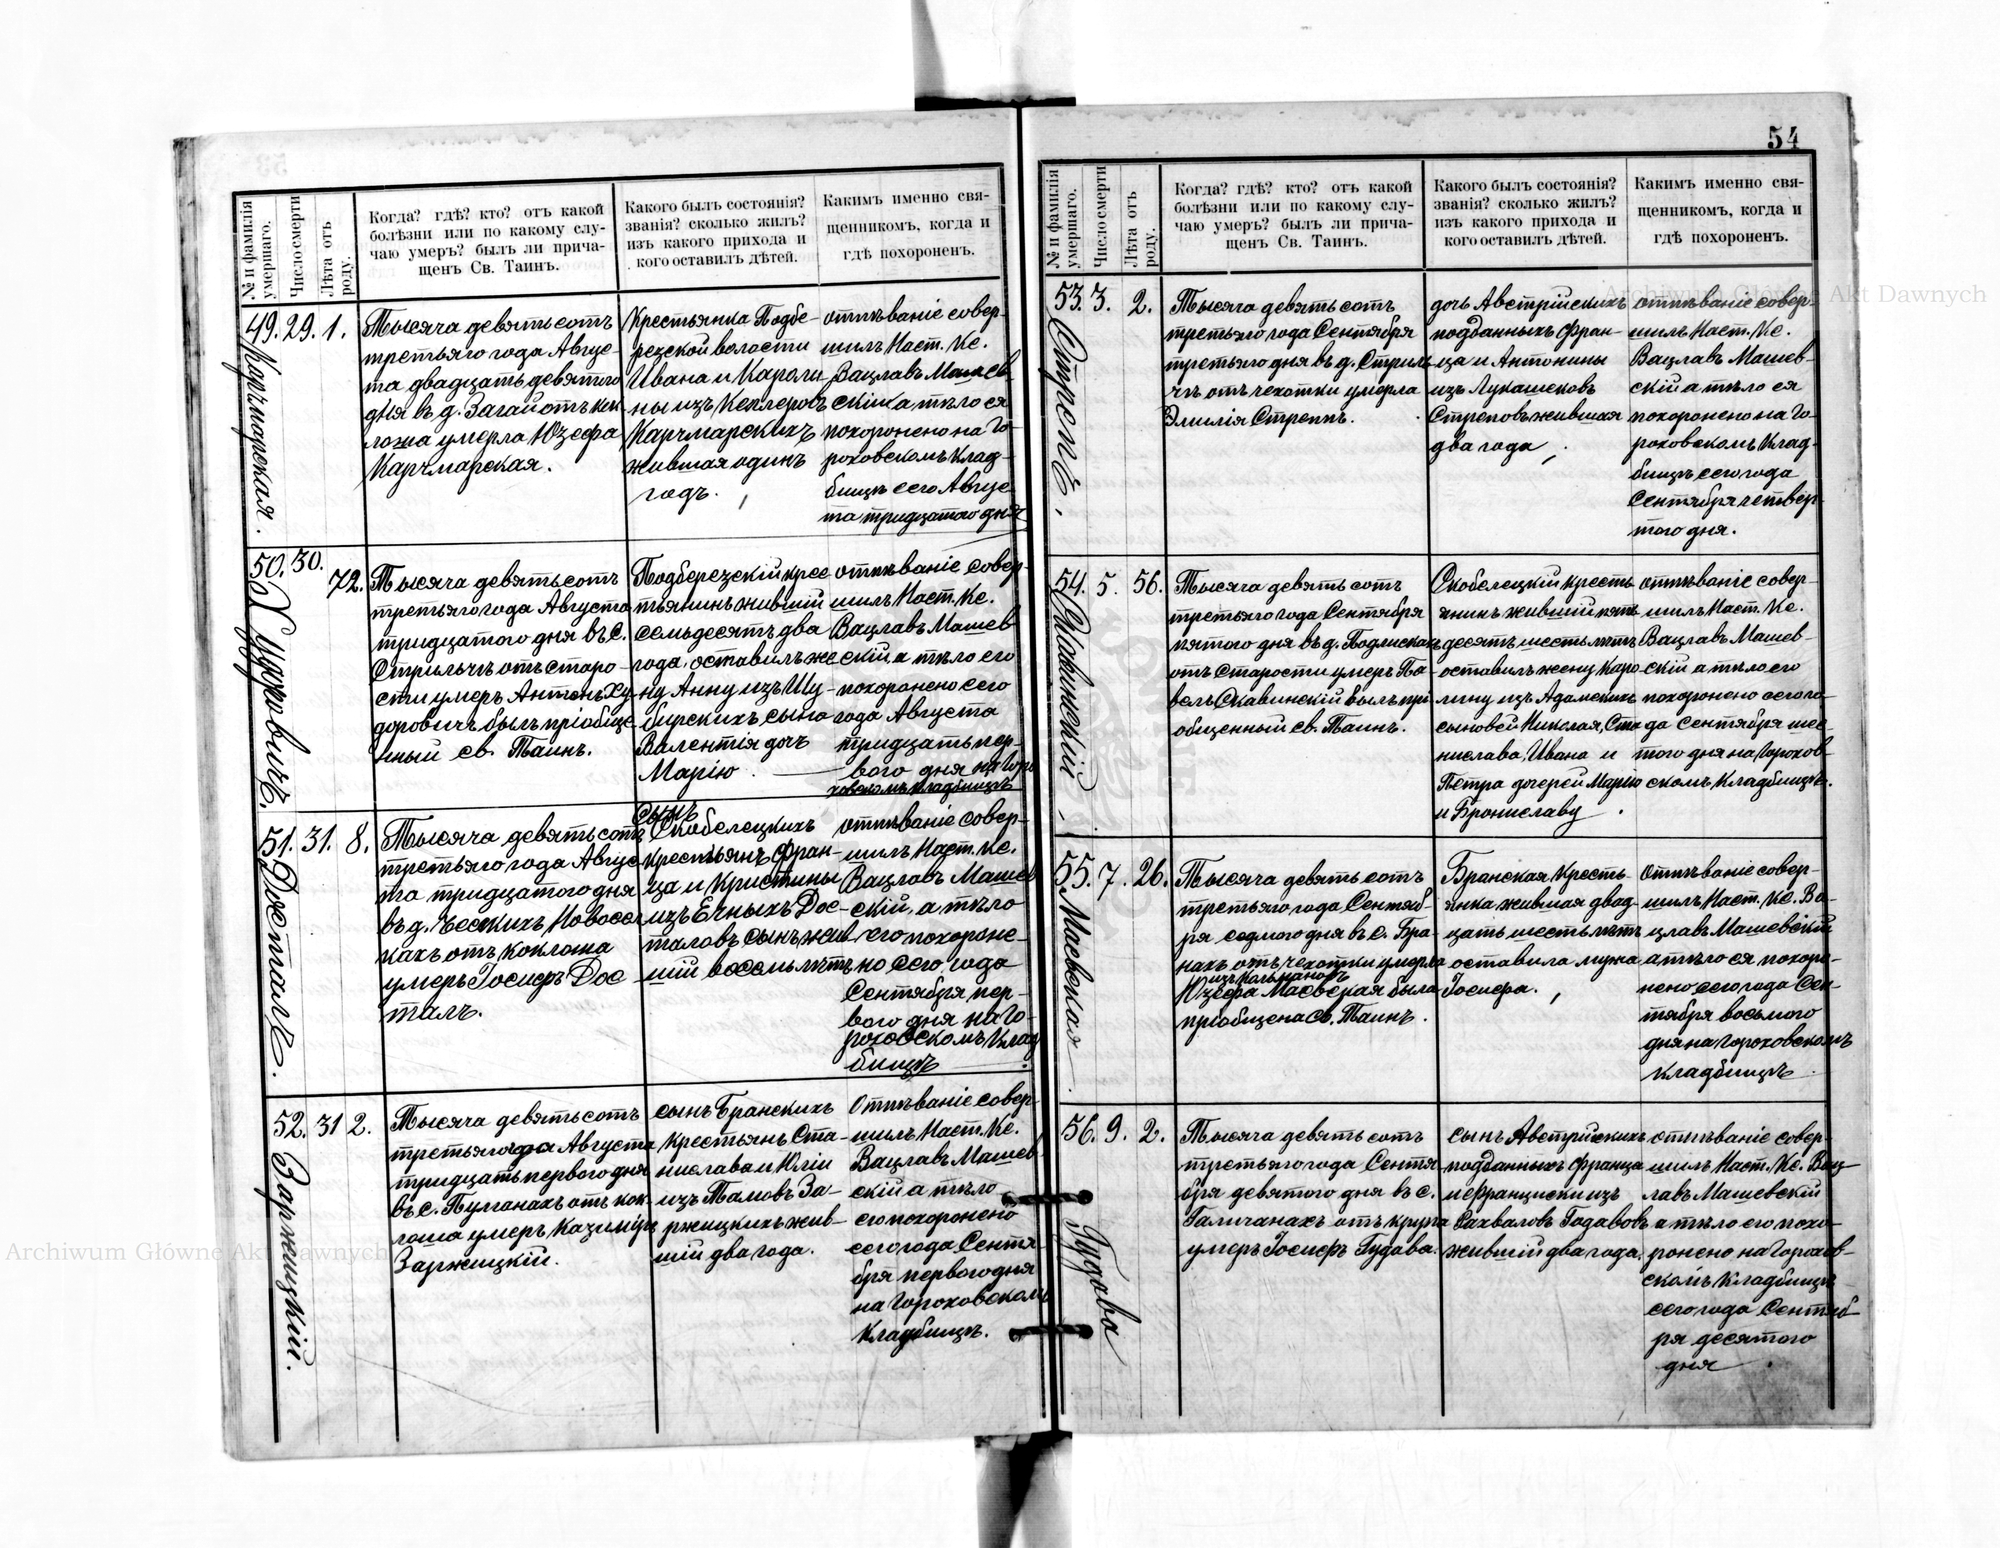 54
№ и фамилія умершаго.
Число смерти
Лѣта отъ роду.
Когда? гдѣ? кто? отъ какой
болѣзни или по какому слу-
чаю умеръ? былъ ли прича-
щенъ Св. Таинъ.
Какого былъ состоянія?
званія? сколько жилъ?
изъ какого прихода и
кого оставилъ дѣтей.
Какимъ именно свя-
щенникомъ, когда и
гдѣ похороненъ.
49.
Карчмарская.
29.
1.
Тысяча девятьсотъ
третьяго года Авгус-
та двадцать девятого
дня въ д. Загай отъ кок
люша умерла Юзефа
Карчмарская.
Крестьянка Подбе-
резской волости
Ивана и Кароли
ны изъ Кеплеровъ
Карчмарскихъ
жившая одинъ
годъ.
отпѣваніе совер-
шилъ Наст. Кс.
Вацлавъ Машев
скій а тѣло ея
похоронено на Го-
роховскомъ клад-
бищѣ сего Авгус
та тридцатого дня
50.
Худоровичъ.
30.
72.
Тысяча девятьсотъ
третьяго года Августа
тридцатого дня въ с.
Стрильчѣ отъ старо-
сти умеръ Антонъ Ху
доровичъ былъ пріобще
нный св. Таинъ.
Подберезскій крес
тьянинъ жившій
семьдесятъ два
года, оставилъ же
ну Анну изъ Шу-
бирскихъ сына
Валентія дочъ
Марію
отпѣваніе совер-
шилъ Наст. Кс.
Вацлавъ Машев
скій, а тѣло его
похоронено сего
года Августа
тридцать пер-
вого дня на Горо
ховскомъ кладбищѣ
51.
Досталъ.
31.
8.
Тысяча девятьсотъ
третьяго года Авгус
та тридцатого дня
въ д. Чеснихъ Новосел
кахъ отъ коклюша
умеръ Іосифъ Дос
талъ.
сынъ
Скобелецкихъ
крестьянъ Фран-
ца и Кристины
изъ Ечныхъ Дос-
таловъ сынъ жив
шій восемь лѣтъ
отпѣваніе совер-
шилъ Наст. Кс.
Вацлавъ Машев
скій, а тѣло
его похороне-
но сего года
Сентября пер-
вого дня на Го-
роховскомъ клад
бищѣ
52.
Заржицкій.
31
2.
Тысяча девятьсотъ
третьяго года Августа
тридцать первого дня
въ с. Пулганахъ отъ кок
люша умеръ Казиміръ
Заржицкій.
сынъ Бранскихъ
крестьянъ Ста-
нислава и Юліи
изъ Тамовъ За-
ржицкихъ жив-
шій два года.
Отпѣваніе совер-
шилъ Наст. Кс.
Вацлавъ Машев
скій а тѣло
его похоронено
сего года Сентя
бря первого дня
на Гороховскомъ
кладбищѣ.
№ и фамилія умершаго.
Число смерти
Лѣта отъ роду.
Когда? гдѣ? кто? отъ какой
болѣзни или по какому слу-
чаю умеръ? былъ ли прича-
щенъ Св. Таинъ.
Какого былъ состоянія?
званія? сколько жилъ?
изъ какого прихода и
кого оставилъ дѣтей.
Какимъ именно свя-
щенникомъ, когда и
гдѣ похороненъ.
53.
Стрепъ.
3.
2.
Тысяча девятьсотъ
третьяго года Сентября
третьяго дня въ д. Стриль
чѣ отъ чехотки умерла
Эмилія Стрепъ.
дочь Австрійскихъ
подданныхъ Фран-
ца и Антонины
изъ Лукашековъ
Стреповъ жившая
два года
отпѣваніе совер-
шилъ Наст. Кс.
Вацлавъ Машев-
скій а тѣло ея
похоронено на Го-
роховскомъ клад-
бищѣ сего года
Сентября четвер-
того дня.
54.
Скавинскій
5.
56.
Тысяча девятьсотъ
третьяго года Сентября
пятого дня въ д. Подлискахъ
отъ старости умеръ Па-
велъ Скавинскій былъ прі
общенный св. Таинъ.
Скобелецкій кресть
янинъ жившій пять
десятъ шесть лѣтъ
оставилъ жену Каро
лину изъ Адамскихъ
сыновей Николая, Ста
нислава, Ивана и
Петра дочерей Марію
и Брониславу
отпѣваніе совер-
шилъ Наст. Кс.
Вацлавъ Машев-
скій а тѣло его
похоронено сего го-
да Сентября шес-
того дня на Горохов-
скомъ кладбищѣ.
55.
Маевская
7.
26.
Тысяча девятьсотъ
третьяго года Сентяб-
ря седмого дня въ с. Бра-
нахъ отъ чехотки умерла
Юзефа Маевская была
пріобщена св. Таинъ.
Бранская кресть-
янка жившая двад-
цать шесть лѣтъ
оставила мужа
Іосифа.
Отпѣваніе совер-
шилъ Наст. Кс. Ва-
цлавъ Машевскій
а тѣло ея похоро-
нено сего года Сен-
тября восьмого
дня на Гороховскомъ
кладбищѣ
56.
Гудава
9.
2.
Тысяча девятьсотъ
третьяго года Сентя-
бря девятого дня въ с.
Галичанахъ отъ крупа
умеръ Іосифъ Гудава.
сынъ Австрійскихъ
подданныхъ Франца
и Франциски изъ
Рахваловъ Гадавовъ
жившій два года.
отпѣваніе совер-
шилъ Наст. Кс. Вац-
лавъ Машевскій
а тѣло его похо-
ронено на Горохов-
скомъ кладбищѣ
сего года Сентяб-
ря десятого
дня
Archiwum Główne Akt Dawnych
Archiwum Główne Akt Dawnych